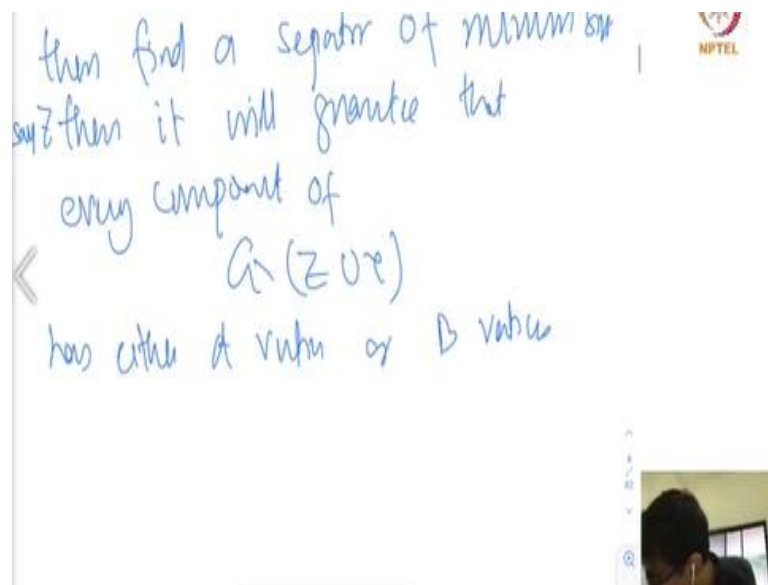 then find a separtr of minimum size
say Z then it will grantee that
every component of
G \ (Z ∪ e)
has either A vertices or B vertices
NPTEL